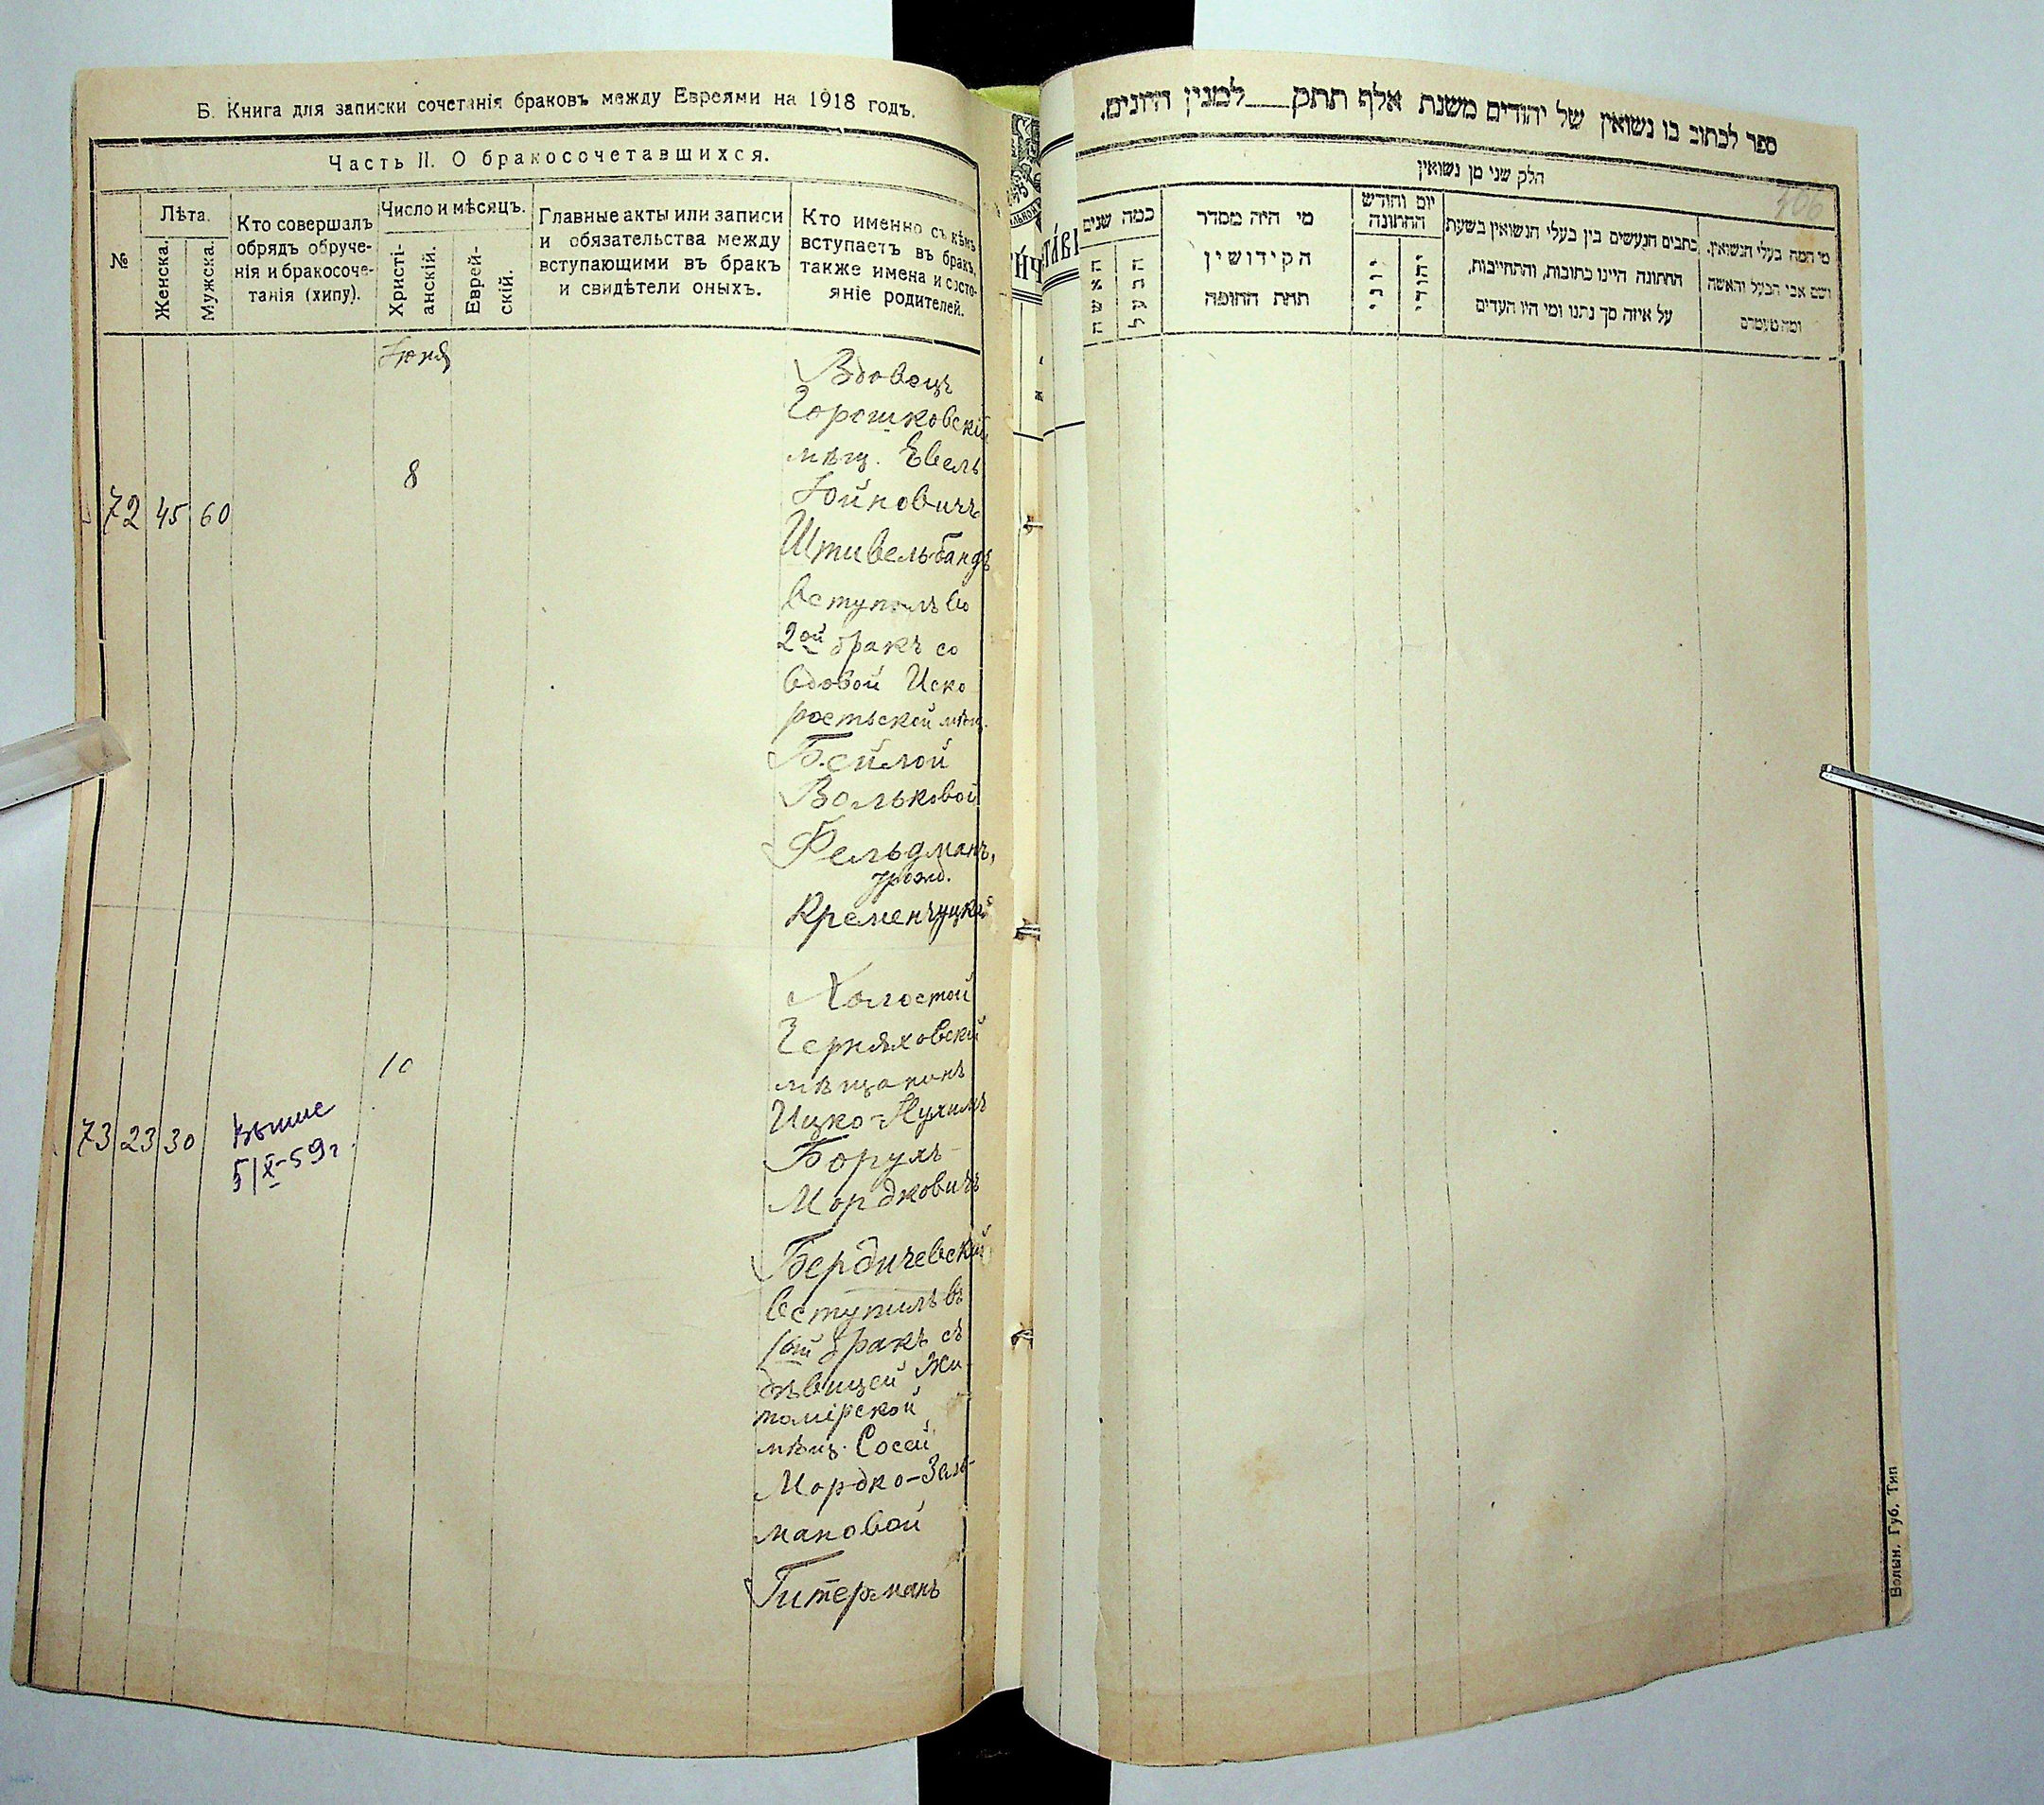 Б. Книга для записки сочетанія браковъ между Евреями на 1918 годъ.
Часть II. О бракосочетавшихся.
№
Лѣта.
Женска.
Мужска.
Кто совершалъ
обрядъ обруче-
нія и бракосоче-
танія (хипу).
Число и мѣсяцъ.
Христі-
анскій.
Еврей-
скій.
Главные акты или записи
и обязательства между
вступающими въ бракъ
и свидѣтели оныхъ.
Кто именно съ кѣмъ
вступаетъ въ бракъ,
также имена и состо-
яніе родителей.
Іюня
72 45 60
8
Вдовецъ
Горошковскій
мѣщ. Евель
Іойновичъ
Штивельбандъ
вступилъ во
2ой бракъ со
вдовой Иско
ростьской мѣщ.
Бейлой
Вольковой
Фельдманъ,
урожд.
Кременчуцкой
73 23 30
Выше
5/X-59г.
10
Холостой
Черняховскій
мѣщанинъ
Ицко-Нухимъ
Борухъ-
Мордковичъ
Бердичевскій
вступилъ въ
1ой бракъ съ
дѣвицей Жи-
томірской
мѣщ. Сосей
Мордко-Заль-
мановой
Гитерманъ
ספר לכתוב בו נשואין של יהודים משנת אלף תתק___למנין הדונים.
חלק שני מן נשואין
406
כמה שנים
האשה
הבעל
מי היה מסדר
הקידושין
תחת החופה
יום וחודש
החתונה
יוני
יהודי
כתבים הנעשים בין בעלי הנשואין בשעת
החתונה היינו כתובות, והתחייבות,
על איזה סך נתנו ומי היו העדים
מי המה בעלי הנשואין,
ושם אבי הבעל והאשה
ומה מעמדם
Волын. Губ. Тип